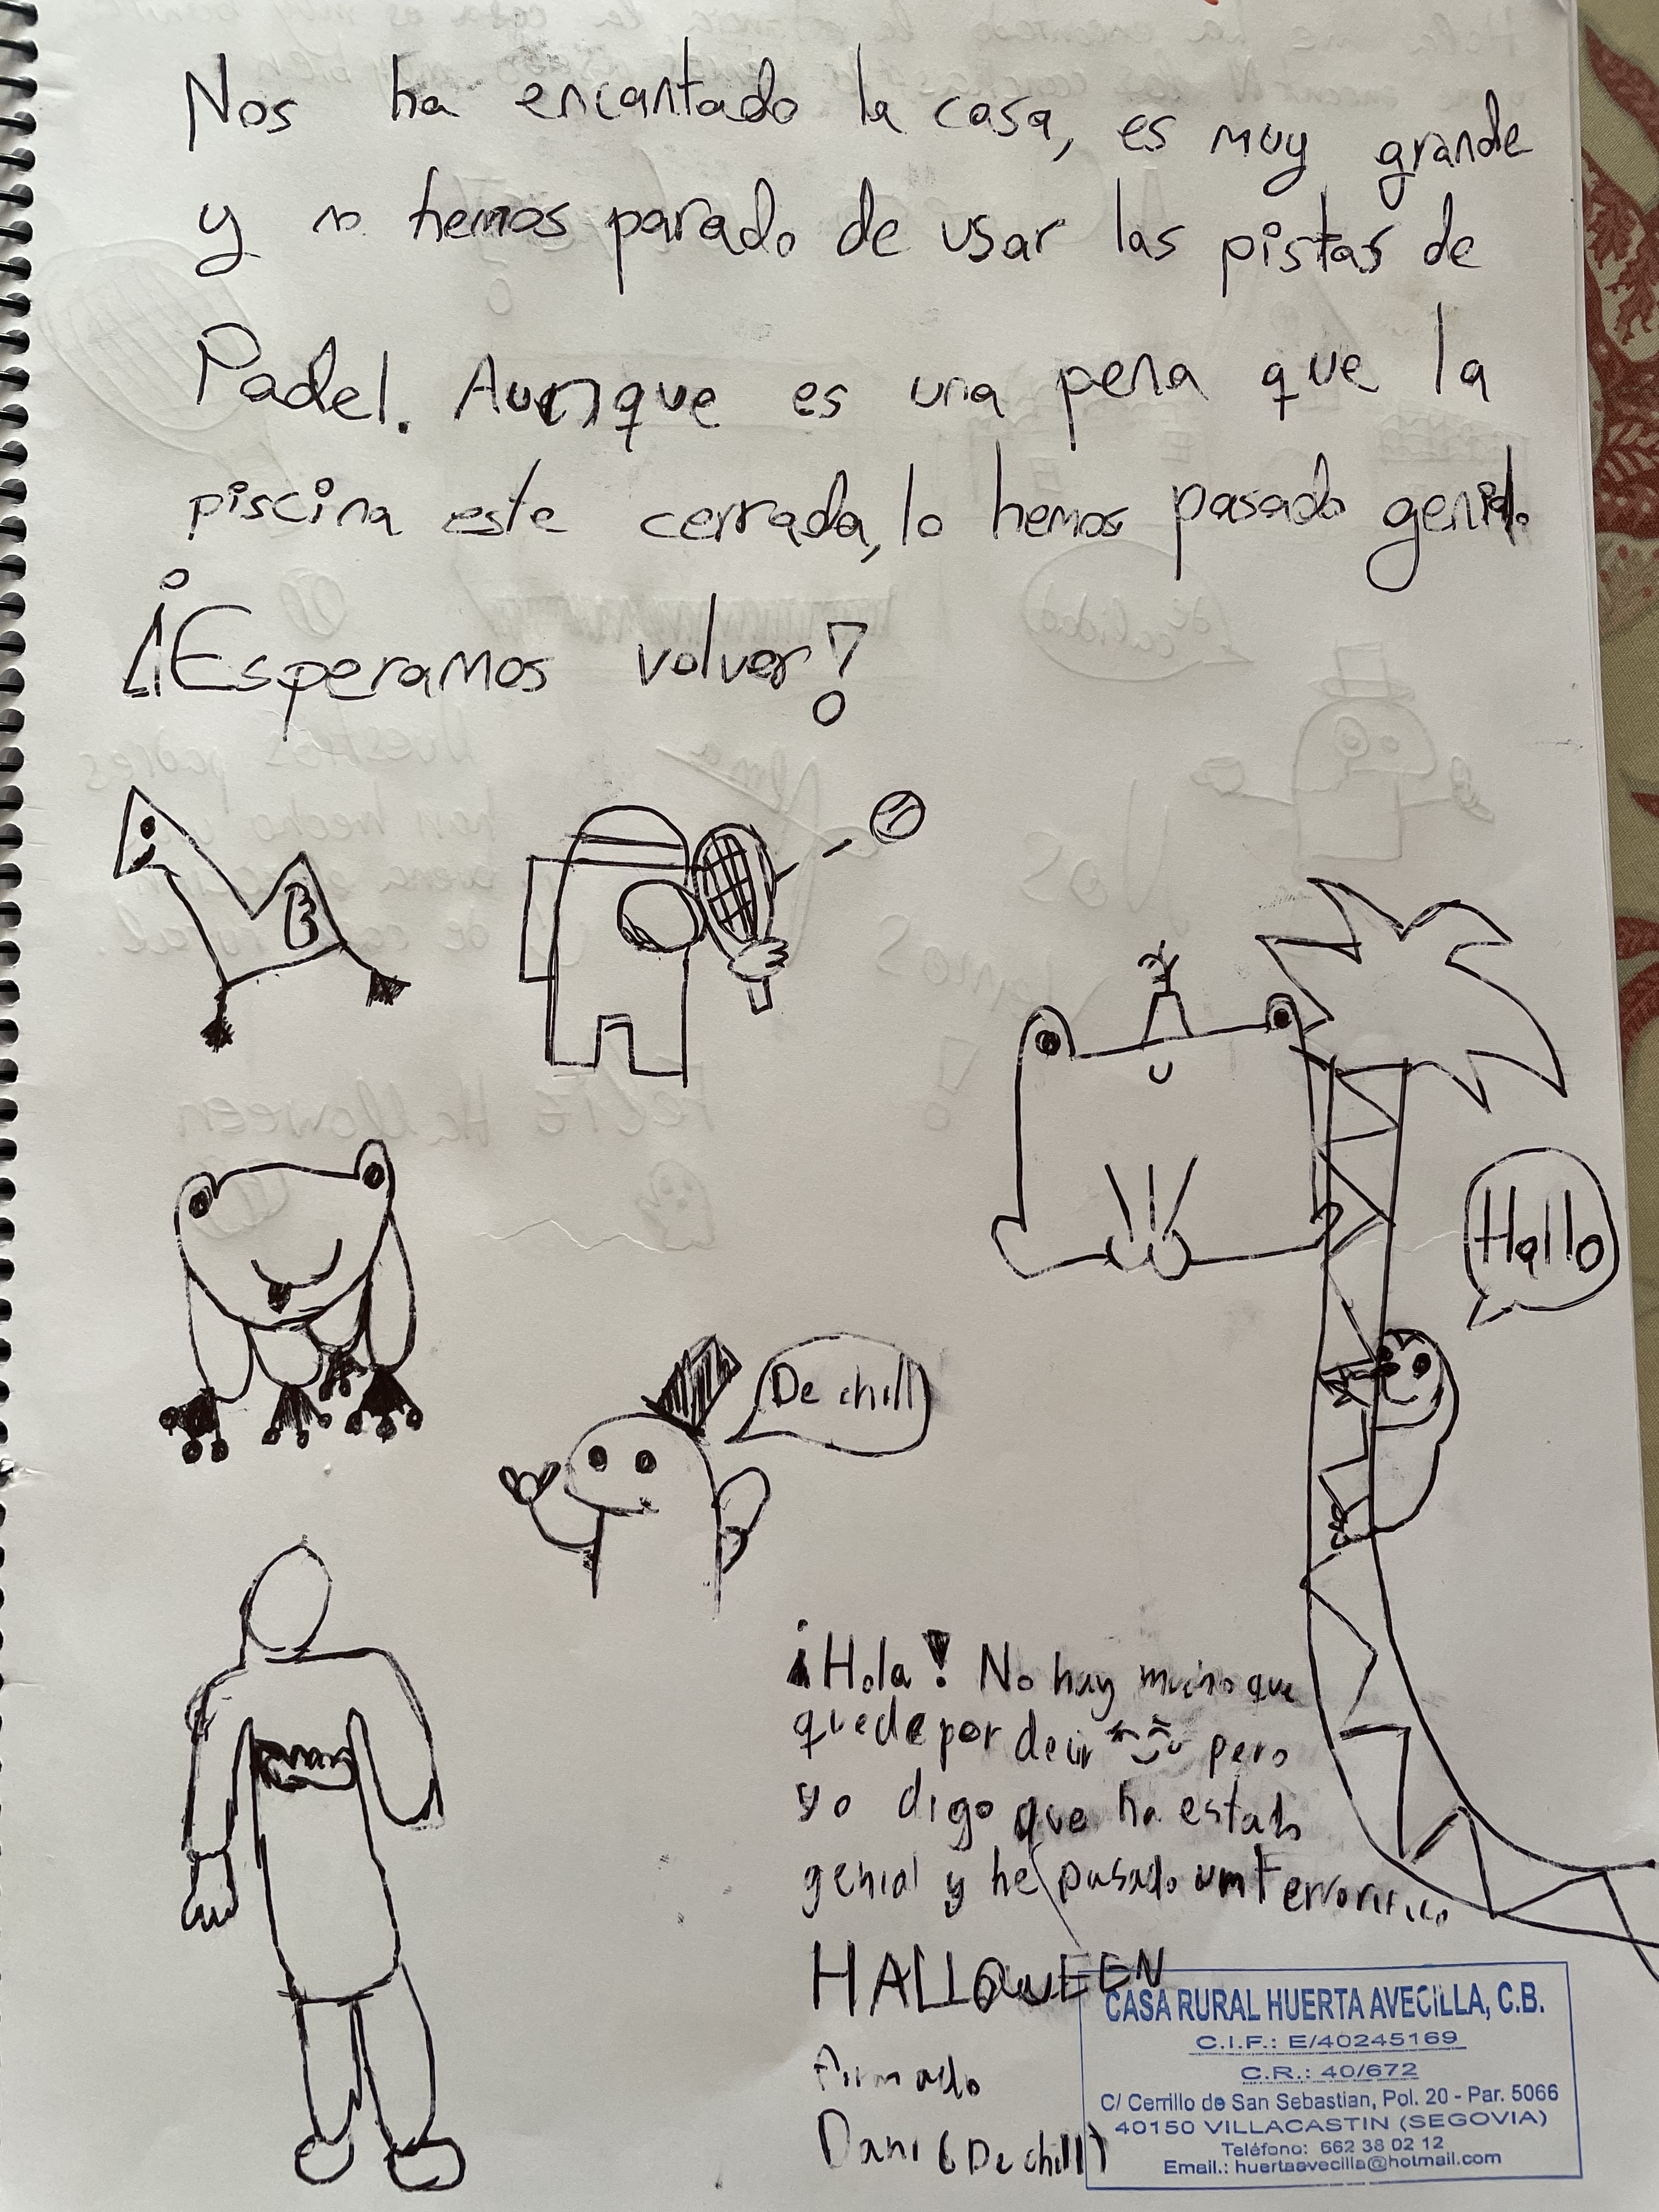 Nos ha encantado la casa, es muy grande
y no hemos parado de usar las pistas de
Padel. Aunque es una pena que la
piscina este cerrada, lo hemos pasado genial.
¡Esperamos volver!
Hallo
De chill
¡Hola! No hay mucho que
quede por decir pero
yo digo que ha estado
genial y he pasado un terrorifico
HALLOWEEN
Firmado
Dani (De chill)
CASA RURAL HUERTA AVECILLA, C.B.
C.I.F.: E/40245169
C.R.: 40/672
C/ Cerrillo de San Sebastian, Pol. 20 - Par. 5066
40150 VILLACASTIN (SEGOVIA)
Teléfono: 662 38 02 12
Email.: huertaavecilla@hotmail.com